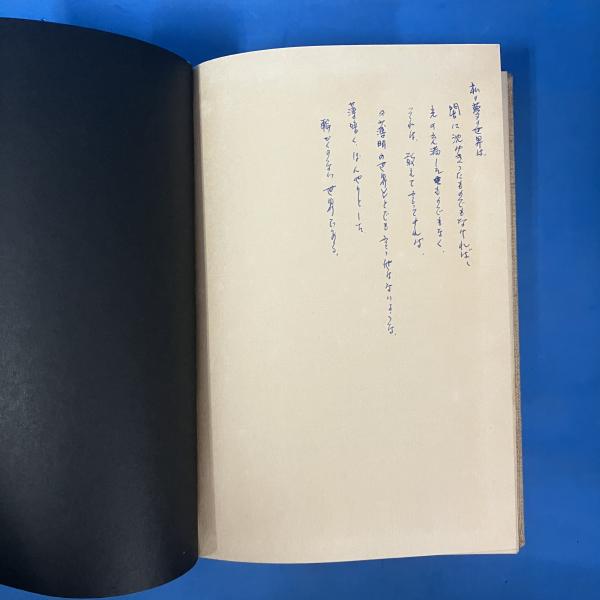 私の夢の世界は、
闇に沈みきったものでもなければ、
光のみち溢れるものでもなく、
それは、敢えて言うなれば、
薄明の世界とでも言う他はないような、
薄暗く、ぼんやりとした
輝かない世界である。